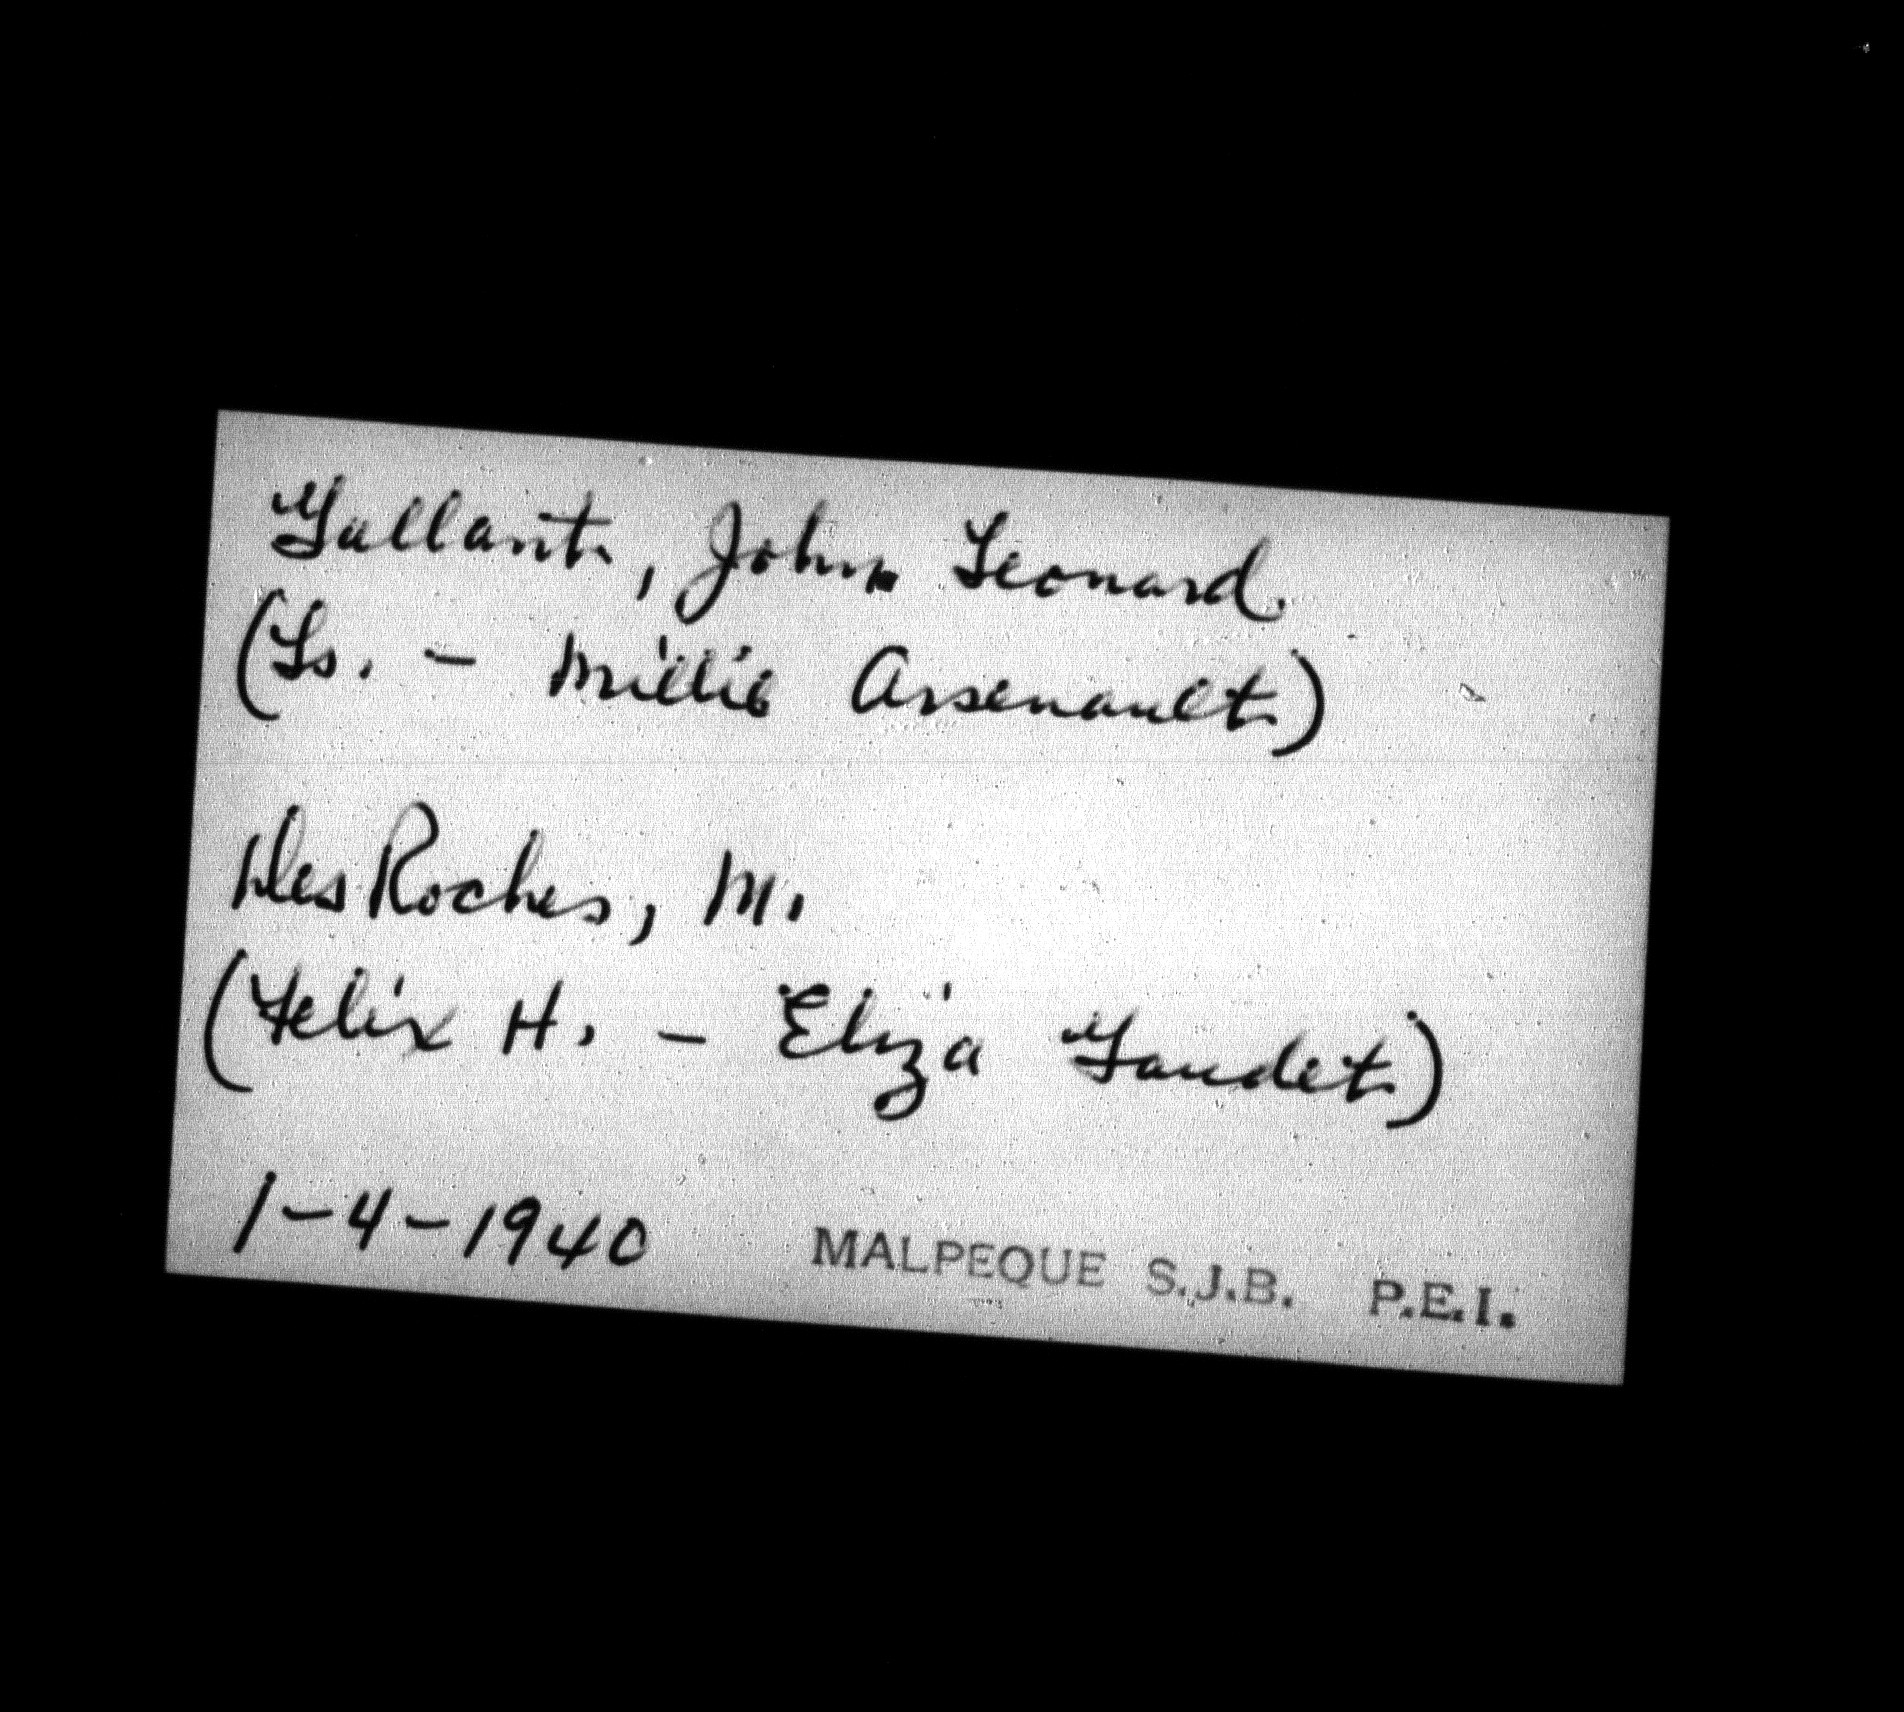 Gallant, John Leonard.
(Ls. - Millie Arsenault)
DesRoches, M.
(Felix H. - Eliza Gaudet)
1-4-1940 MALPEQUE S.J.B. P.E.I.